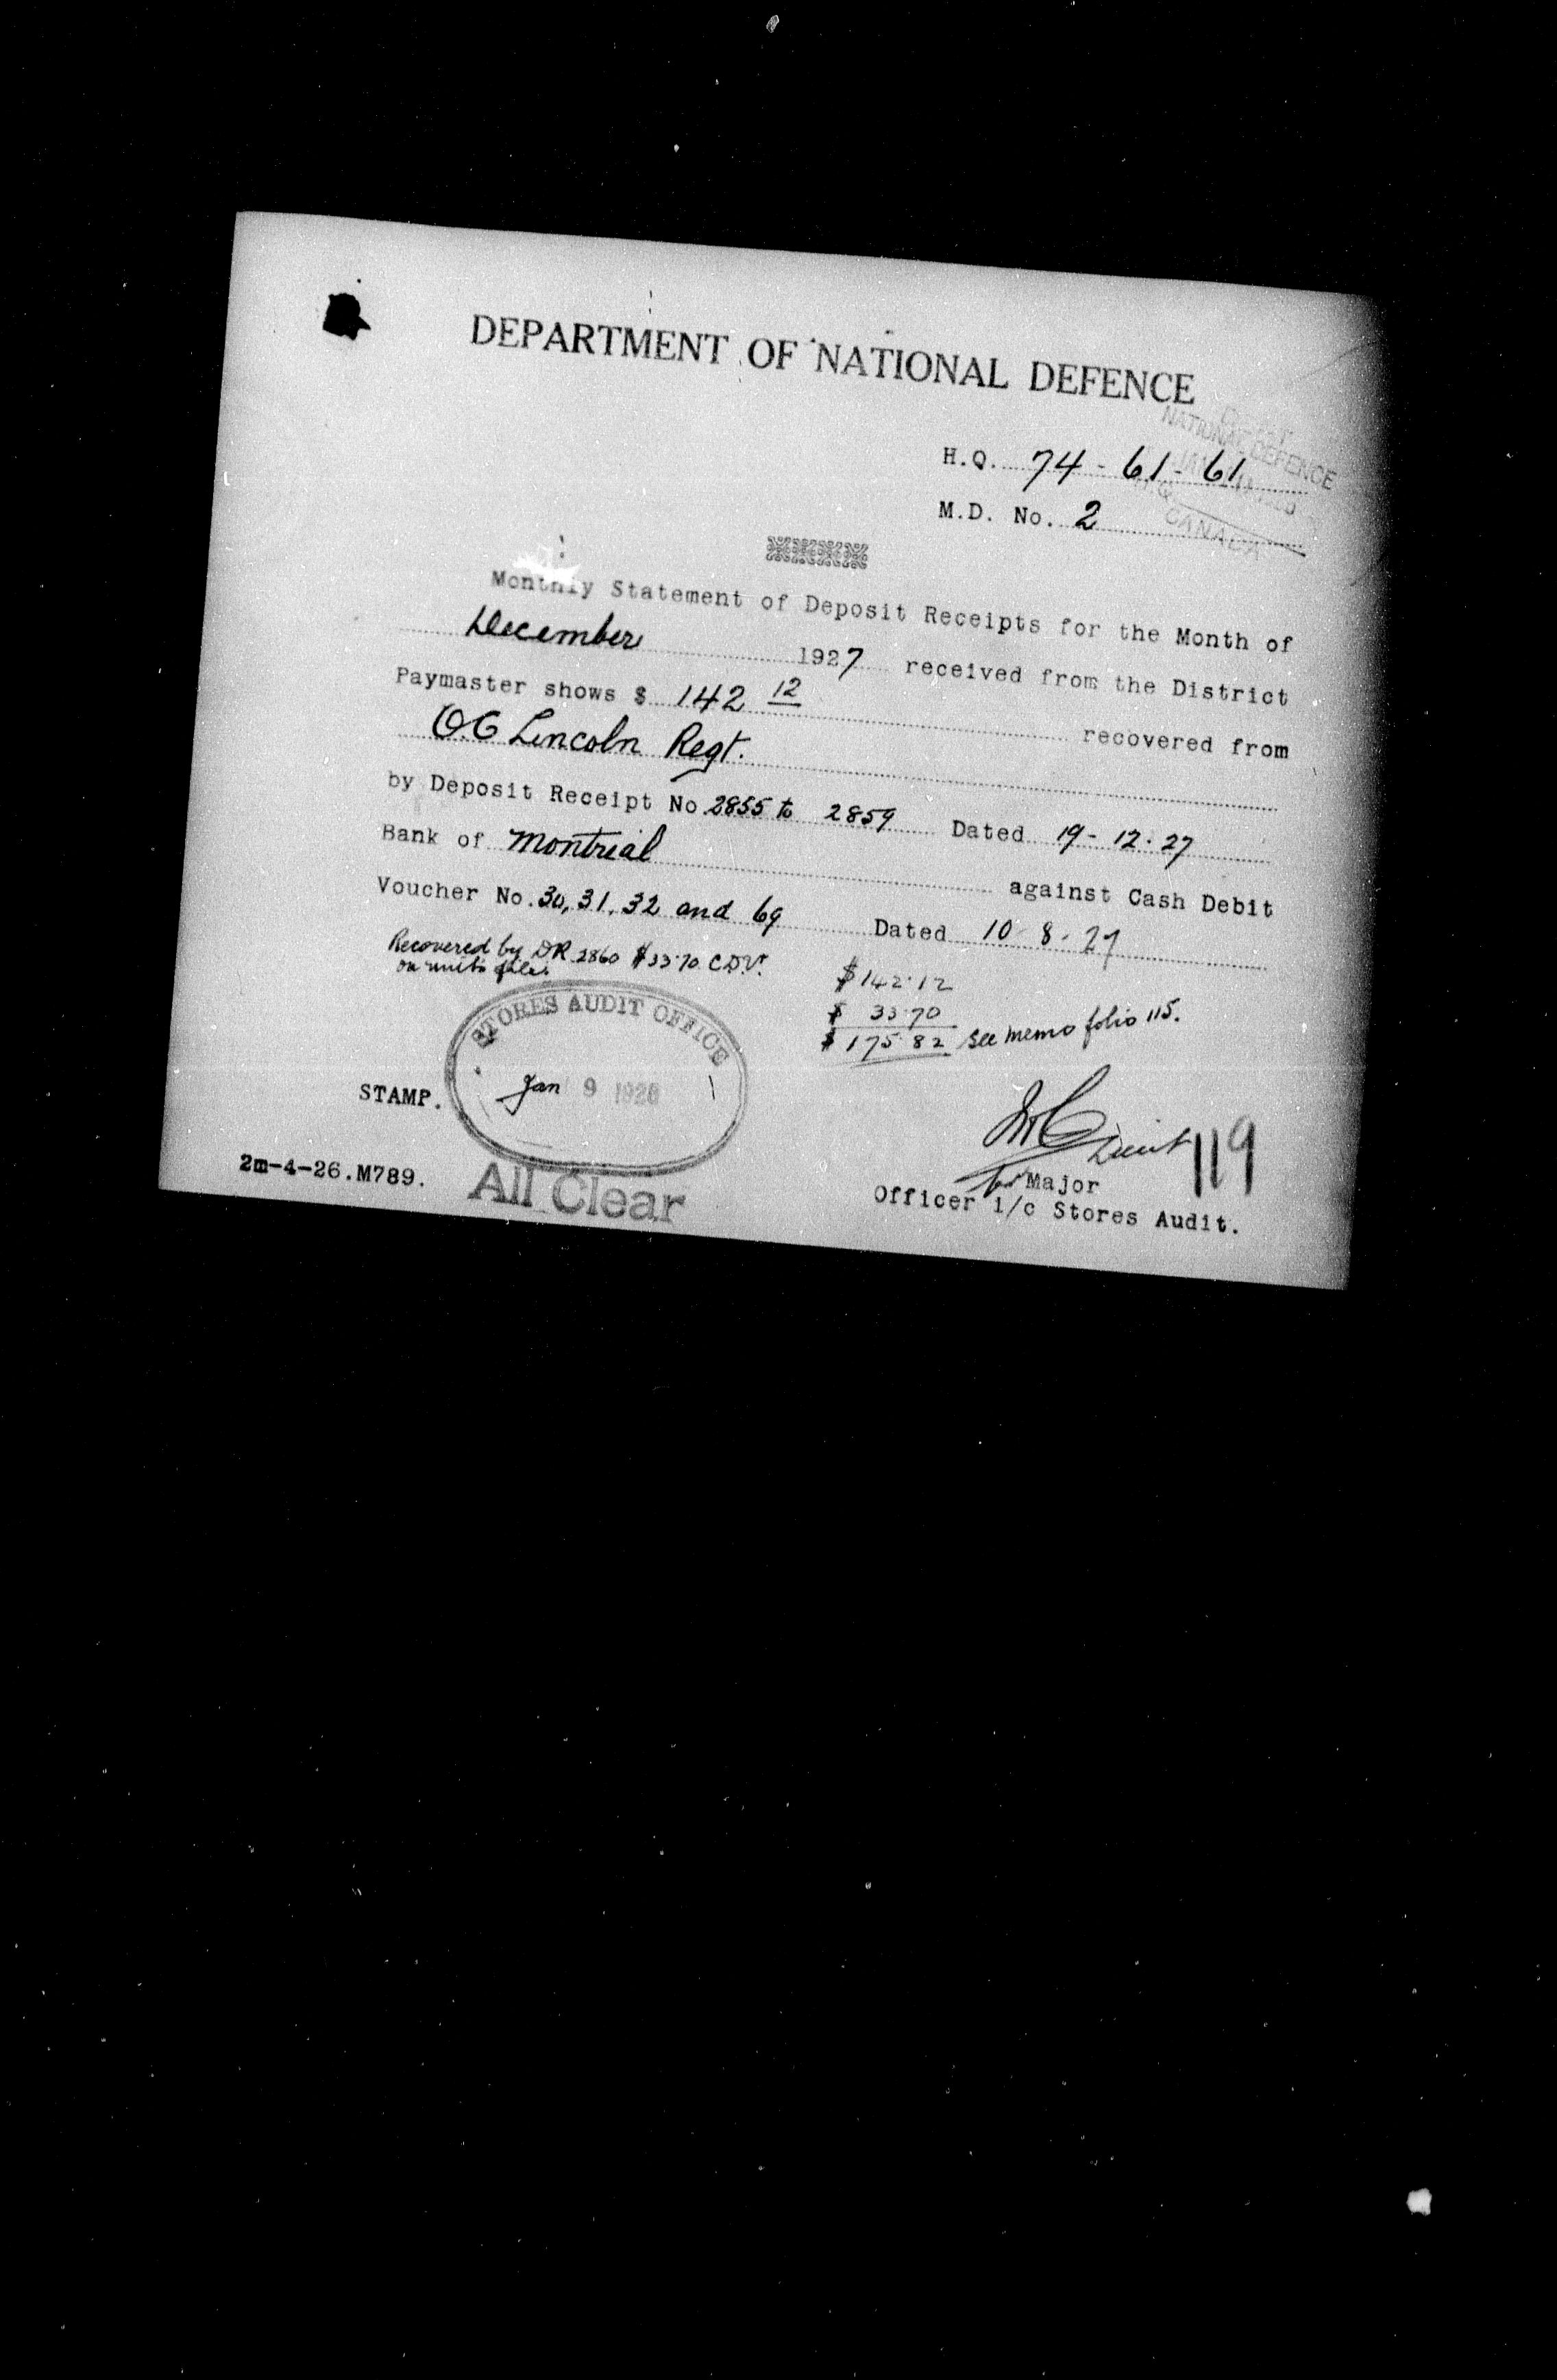 DEPARTMENT OF NATIONAL DEFENCE
NATIONAL DEFENCE
CANADA
H.Q. 74-61-61
M.D. No. 2
Monthly Statement of Deposit Receipts for the Month of
December 1927 received from the District
Paymaster shows $ 142 12 recovered from
O.C Lincoln Regt.
by Deposit Receipt No. 2855 to 2859 Dated 19-12-27
Bank of Montreal against Cash Debit
Voucher No. 30, 31, 32 and 69 Dated 10-8-27
Recovered by DR 2860 $33.70 C.D.V.
on units file.
$142.12
$ 33.70
$175.82 See memo folio 115.
STORES AUDIT OFFICE
Jan 9 1928
STAMP.
All Clear
2m-4-26.M789.
Lieut
119
for Major
Officer i/c Stores Audit.